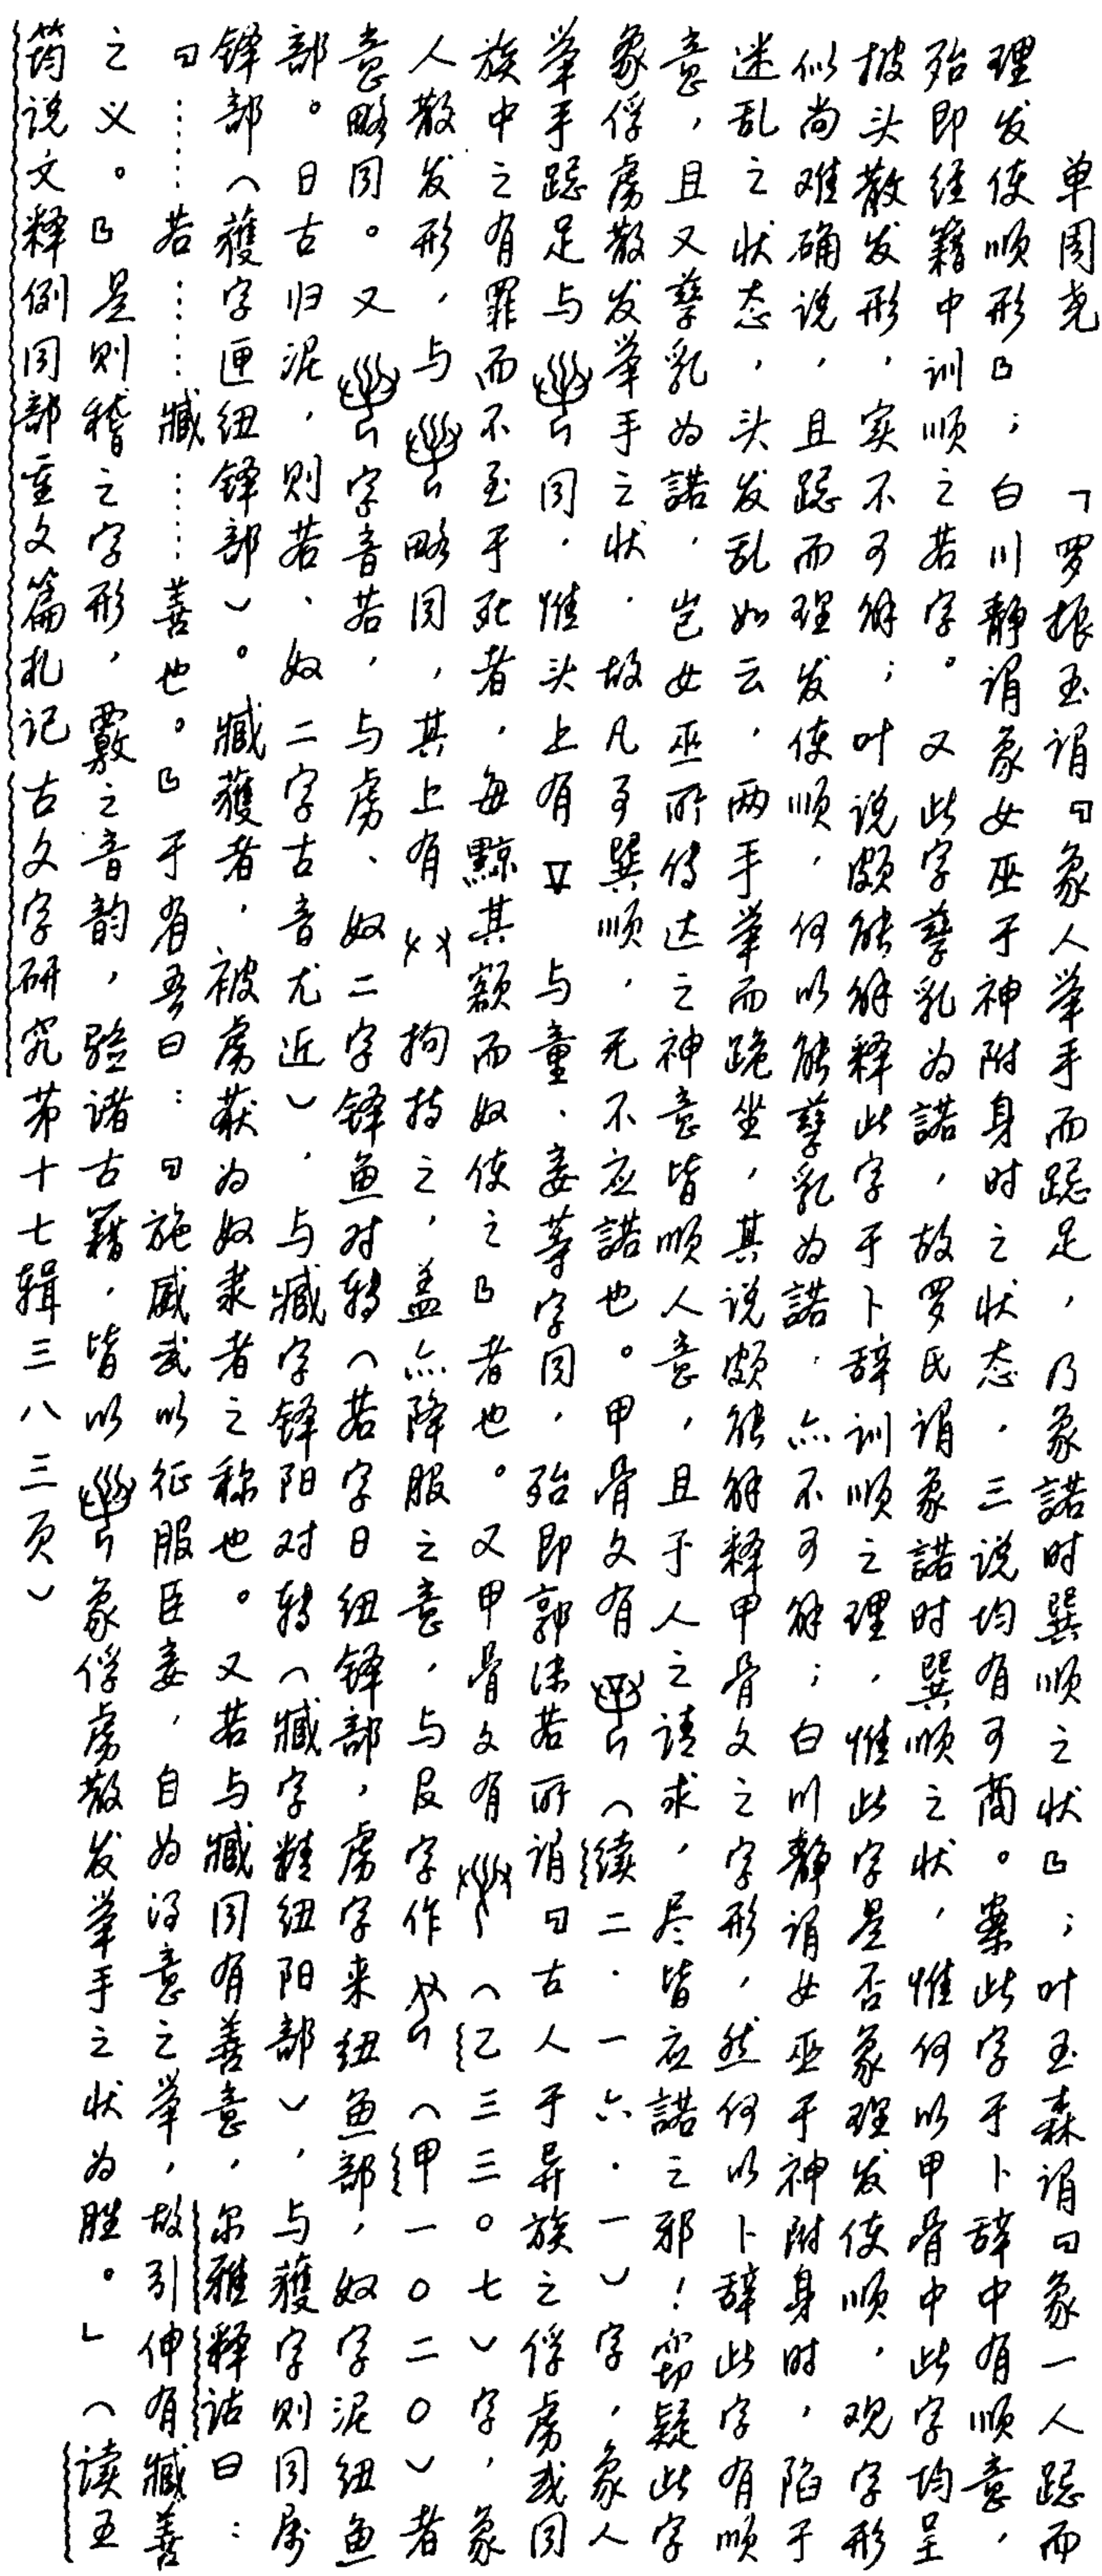 单周尧　「罗振玉谓『象人举手而跽足，乃象諾时巽顺之状』；叶玉森谓『象一人跽而
理发使顺形』；白川静谓象女巫于神附身时之状态，三说均有可商。案此字于卜辞中有顺意，
殆即经籍中训顺之若字。又此字孳乳为諾，故罗氏谓象諾时巽顺之状，惟何以甲骨中此字均呈
披头散发形，实不可解；叶说颇能解释此字于卜辞训顺之理，惟此字是否象理发使顺，观字形
似尚难确说，且跽而理发使顺，何以能孳乳为諾，亦不可解；白川静谓女巫于神附身时，陷于
迷乱之状态，头发乱如云，两手举而跪坐，其说颇能解释甲骨文之字形，然何以卜辞此字有顺
意，且又孳乳为諾，岂女巫所传达之神意皆顺人意，且于人之请求，尽皆应諾之邪！窃疑此字
象俘虏散发举手之状，故凡可巽顺，无不应諾也。甲骨文有（续二·一六·一）字，象人
举手跽足与同，惟头上有与童、妾等字同，殆即郭沫若所谓『古人于异族之俘虏或同
族中之有罪而不至于死者，每黥其额而奴使之』者也。又甲骨文有（乙三三〇七）字，象
人散发形，与略同，其上有拘持之，盖亦降服之意，与𠬝字作（甲一〇二〇）者
意略同。又字音若，与虏、奴二字铎鱼对转（若字日纽铎部，虏字来纽鱼部，奴字泥纽鱼
部。日古归泥，则若、奴二字古音尤近），与臧字铎阳对转（臧字精纽阳部），与獲字则同属
铎部（獲字匣纽铎部）。臧獲者，被虏获为奴隶者之称也。又若与臧同有善意，尔雅释诂曰：
『……若……臧……善也。』于省吾曰：『施威武以征服臣妾，自为得意之举，故引伸有臧善
之义。』是则稽之字形，覈之音韵，验诸古籍，皆以象俘虏散发举手之状为胜。」（读王
筠说文释例同部重文篇札记古文字研究第十七辑三八三页）